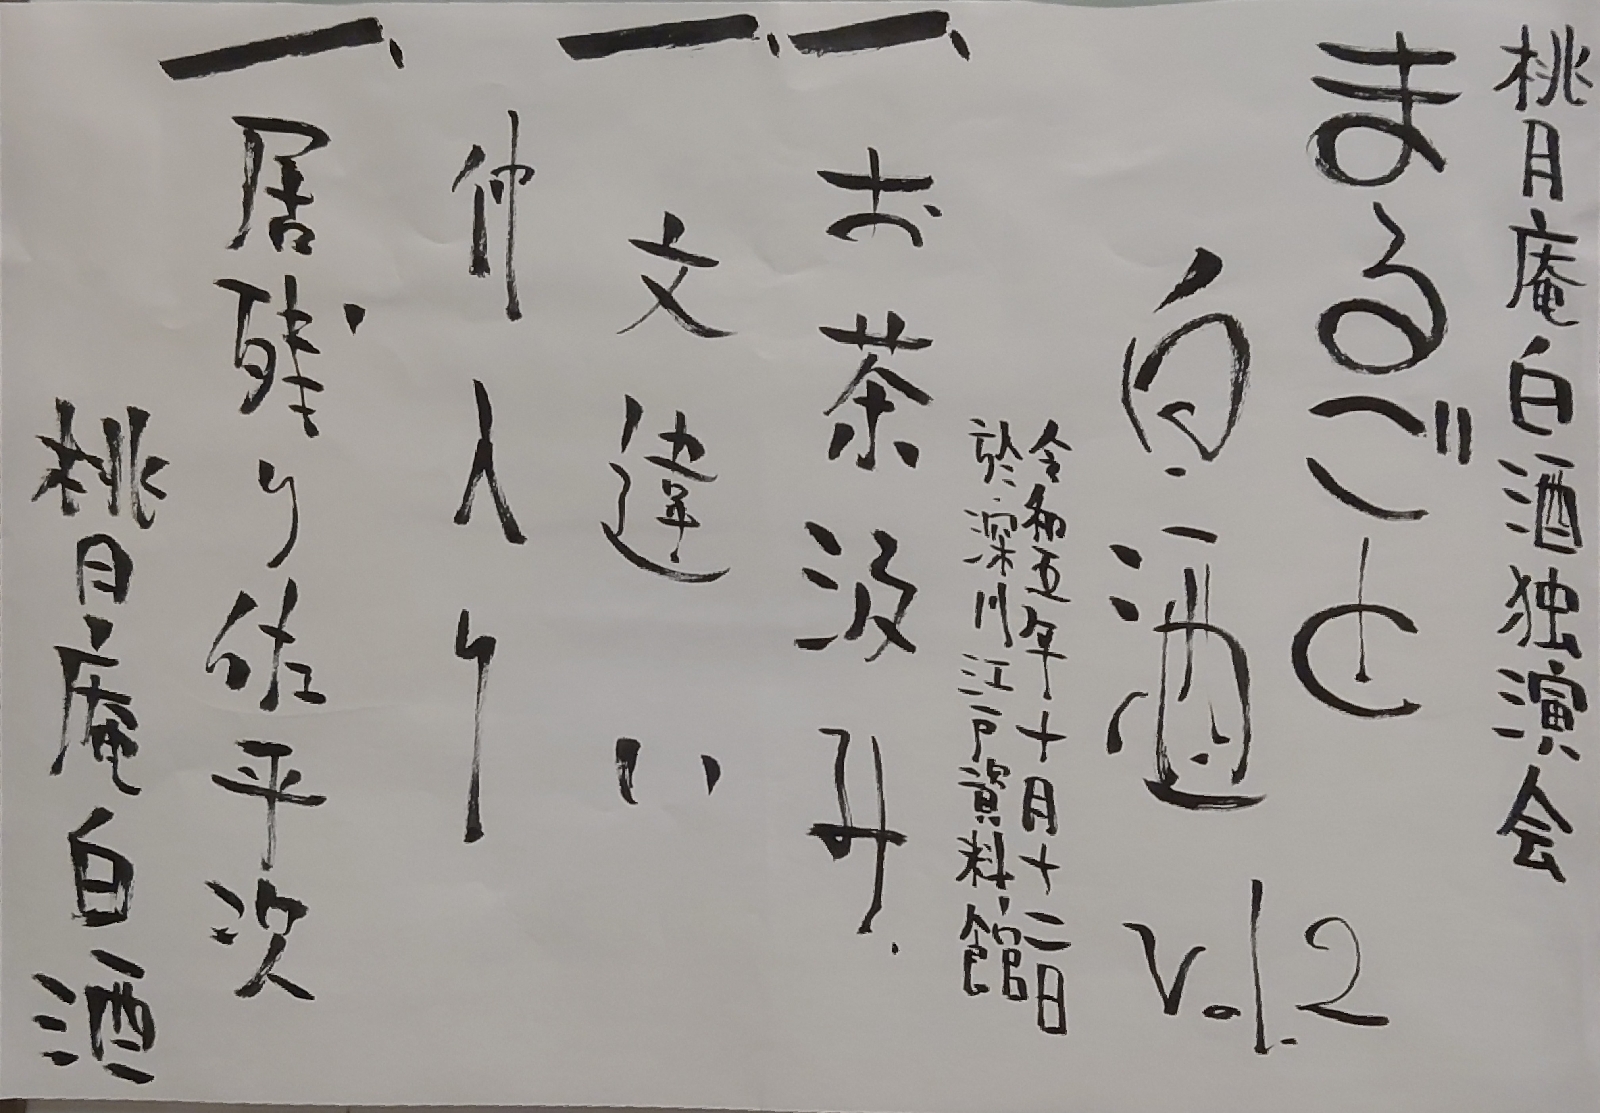 桃月庵白酒独演会
まるごと
白酒
vol.2
令和五年十月十二日
於.深川江戸資料館
一、お茶汲み
一、文違い
仲入り
一、居残り佐平次
桃月庵白酒